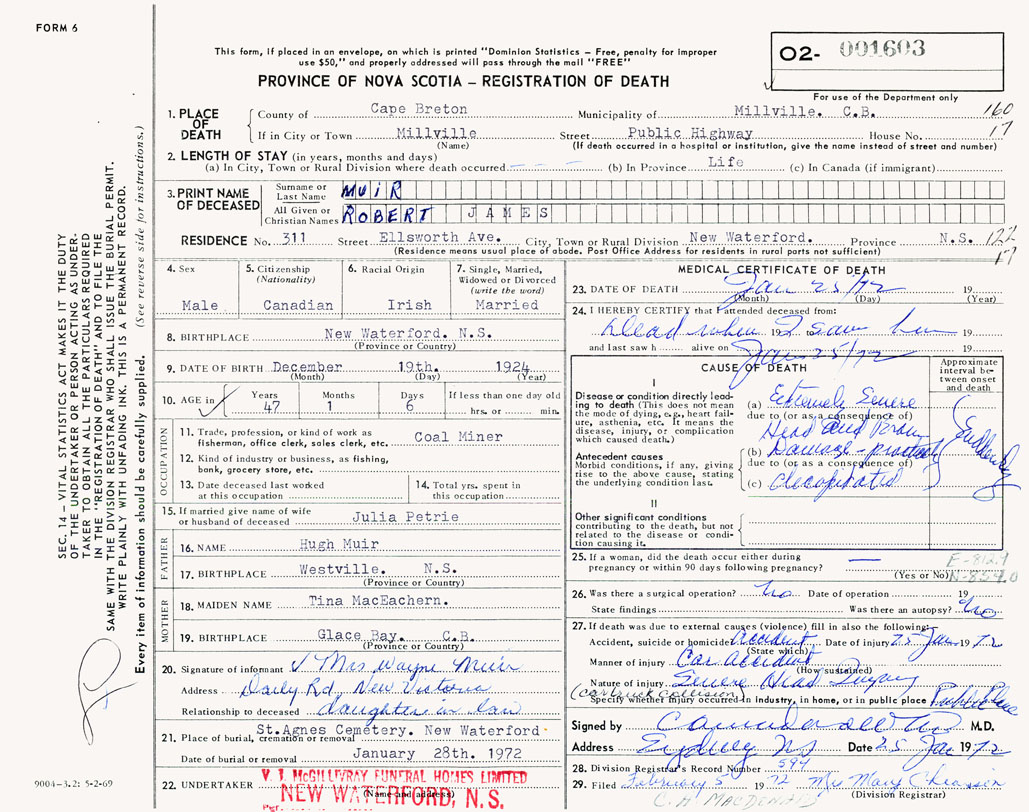 FORM 6
This form, if placed in an envelope, on which is printed "Dominion Statistics – Free, penalty for improper
use $50," and properly addressed will pass through the mail "FREE"
PROVINCE OF NOVA SCOTIA – REGISTRATION OF DEATH
02- 001603
For use of the Department only
1. PLACE OF DEATH
County of Cape Breton Municipality of Millville. C.B. 160
If in City or Town Millville Street Public Highway House No. 17
(Name) (If death occurred in a hospital or institution, give the name instead of street and number)
2. LENGTH OF STAY (in years, months and days)
(a) In City, Town or Rural Division where death occurred --- (b) In Province Life (c) In Canada (if immigrant)
3. PRINT NAME OF DECEASED
Surname or Last Name MUIR
All Given or Christian Names ROBERT JAMES
RESIDENCE No. 311 Street Ellsworth Ave. City, Town or Rural Division New Waterford. Province N.S. 122
(Residence means usual place of abode. Post Office Address for residents in rural parts not sufficient) 17
4. Sex
Male
5. Citizenship
(Nationality)
Canadian
6. Racial Origin
Irish
7. Single, Married,
Widowed or Divorced
(write the word)
Married
8. BIRTHPLACE New Waterford. N.S.
(Province or Country)
9. DATE OF BIRTH December 19th. 1924
(Month) (Day) (Year)
10. AGE in
Years 47
Months 1
Days 6
If less than one day old
hrs. or min.
OCCUPATION
11. Trade, profession, or kind of work as
fisherman, office clerk, sales clerk, etc. Coal Miner
12. Kind of industry or business, as fishing,
bank, grocery store, etc.
13. Date deceased last worked
at this occupation
14. Total yrs. spent in
this occupation
15. If married give name of wife
or husband of deceased Julia Petrie
FATHER
16. NAME Hugh Muir
17. BIRTHPLACE Westville. N.S.
(Province or Country)
MOTHER
18. MAIDEN NAME Tina MacEachern.
19. BIRTHPLACE Glace Bay. C.B.
(Province or Country)
20. Signature of informant Mrs Wayne Muir
Address Daily Rd, New Victoria
Relationship to deceased daughter in law
21. Place of burial, cremation or removal St. Agnes Cemetery. New Waterford.
Date of burial or removal January 28th. 1972
22. UNDERTAKER V. J. McGILLIVRAY FUNERAL HOMES LIMITED
(Name and address)
NEW WATERFORD, N.S.
MEDICAL CERTIFICATE OF DEATH
23. DATE OF DEATH Jan 25/72 19
(Month) (Day) (Year)
24. I HEREBY CERTIFY that I attended deceased from:
Dead when 19 I saw him 19
and last saw h alive on Jan 25/72 19
CAUSE OF DEATH
Approximate interval between onset and death
I
Disease or condition directly leading to death (This does not mean the mode of dying, e.g., heart failure, asthenia, etc. It means the disease, injury, or complication which caused death.)
(a) Extremely Severe
due to (or as a consequence of)
Head and Brain
Antecedent causes
Morbid conditions, if any, giving rise to the above cause, stating the underlying condition last.
(b) Damage - practically
due to (or as a consequence of)
(c) decapitated
Suddenly
II
Other significant conditions
contributing to the death, but not
related to the disease or condition
causing it.
25. If a woman, did the death occur either during
pregnancy or within 90 days following pregnancy? —
(Yes or No)
E-812.9
N-854.0
26. Was there a surgical operation? no Date of operation 19
State findings Was there an autopsy? no
27. If death was due to external causes (violence) fill in also the following:
Accident, suicide or homicide Accident Date of injury 25 Jan 1972
(State which)
Manner of injury Car Accident
(How sustained)
Nature of injury Severe Head Injury
(Car truck collision)
Specify whether injury occurred in industry, in home, or in public place Public Place
Signed by M.D.
Address Sydney NS Date 25 Jan 1972
28. Division Registrar's Record Number 594
29. Filed February 5 19 72 Mrs Mary Chiasson
(Division Registrar)
C. H MACDONALD
SEC. 14 – VITAL STATISTICS ACT MAKES IT THE DUTY
OF THE UNDERTAKER OR PERSON ACTING AS UNDER-
TAKER TO OBTAIN ALL THE PARTICULARS REQUIRED
IN THE "REGISTRATION OF DEATH" AND TO FILE THE
SAME WITH THE DIVISION REGISTRAR WHO SHALL ISSUE THE BURIAL PERMIT.
WRITE PLAINLY WITH UNFADING INK. THIS IS A PERMANENT RECORD.
Every item of information should be carefully supplied. (See reverse side for instructions.)
9004-3.2: 5-2-69